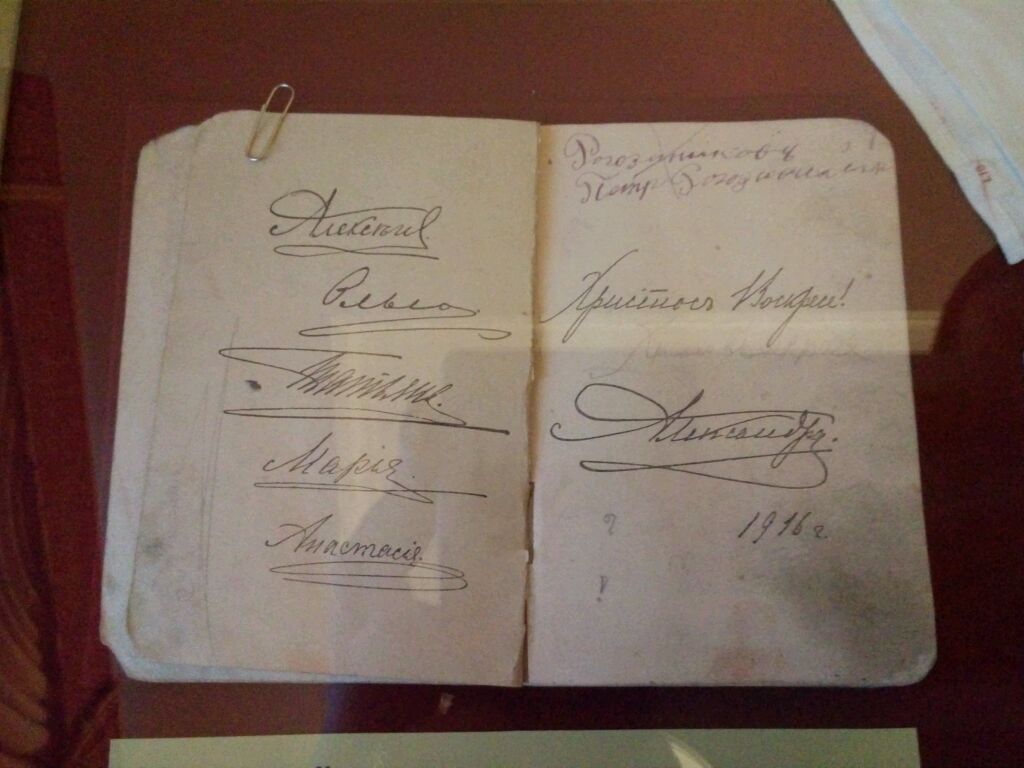 Алексѣй
Ольга
Татьяна.
Марія.
Анастасія.
Христосъ Воскресе!
Александра.
1916 г.
?
!